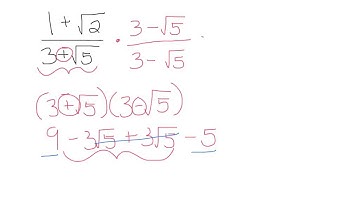 1 + √2 / 3 + √5 · 3 - √5 / 3 - √5 .
(3 + √5)(3 - √5)
9 - 3√5 + 3√5 - 5